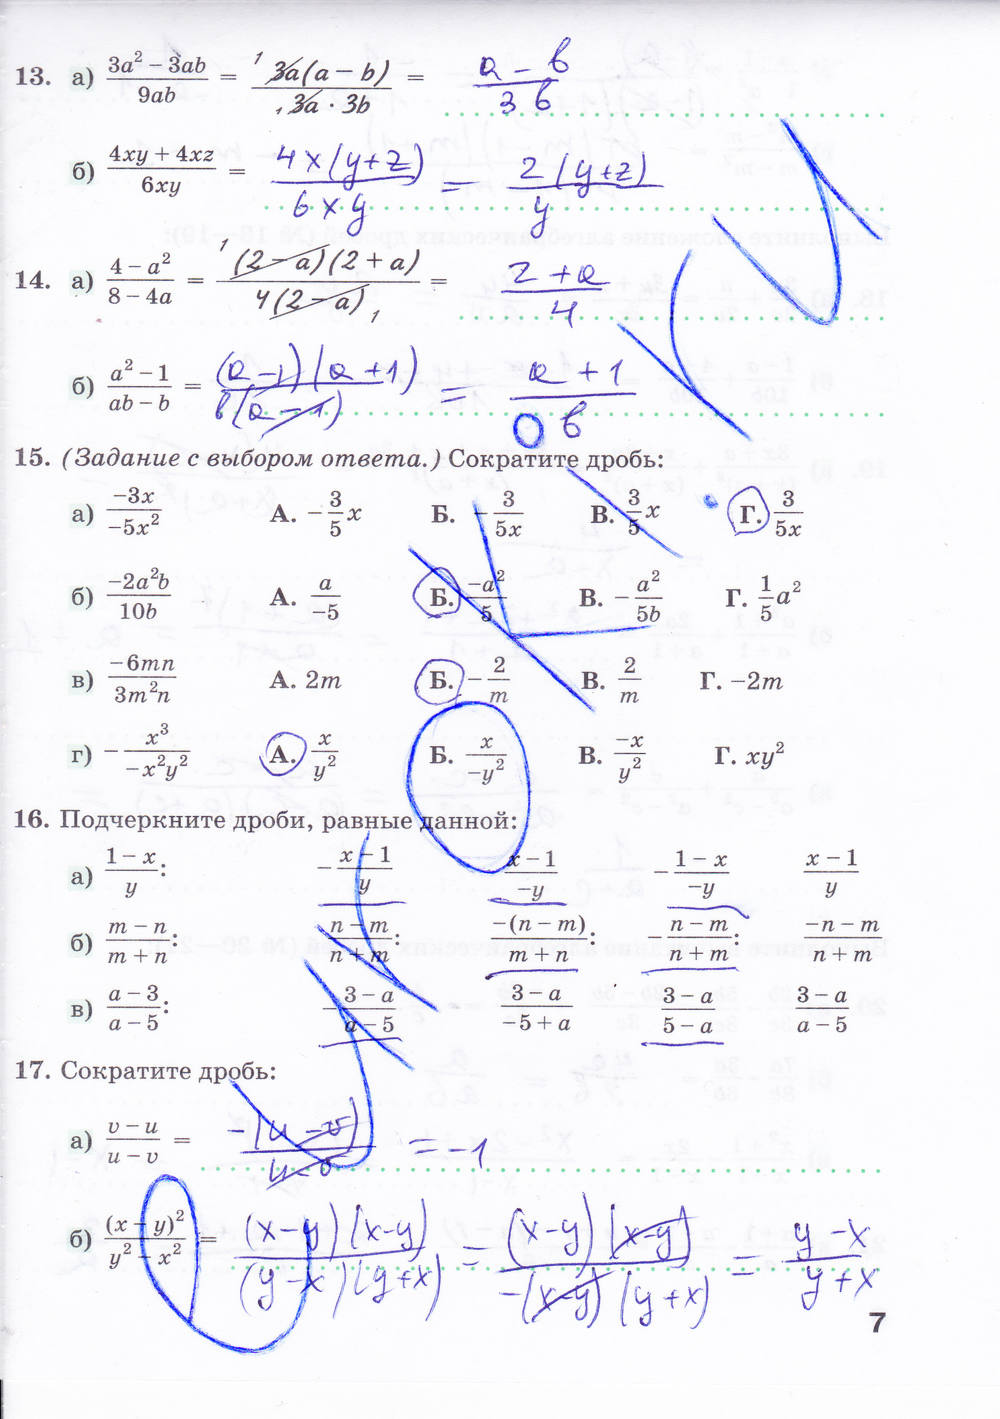 13. а) 3a² − 3ab / 9ab = ¹ 3a(a − b) / ₁ 3a · 3b = a − b / 3b
б) 4xy + 4xz / 6xy = 4x(y+z) / 6xy = 2(y+z) / y
14. а) 4 − a² / 8 − 4a = ¹ (2 − a)(2 + a) / 4(2 − a) ₁ = 2 + a / 4
б) a² − 1 / ab − b = (a − 1)(a + 1) / b(a − 1) = a + 1 / b
15. (Задание с выбором ответа.) Сократите дробь:
а) −3x / −5x² А. −3/5 x Б. −3/5x В. 3/5 x Г. 3/5x
б) −2a²b / 10b А. a/−5 Б. −a²/5 В. −a²/5b Г. 1/5 a²
в) −6mn / 3m²n А. 2m Б. −2/m В. 2/m Г. −2m
г) −x³ / −x²y² А. x/y² Б. x/−y² В. −x/y² Г. xy²
16. Подчеркните дроби, равные данной:
а) 1 − x / y: −x − 1 / y x − 1 / −y −1 − x / −y x − 1 / y
б) m − n / m + n: n − m / n + m: −(n − m) / m + n: −n − m / n + m: −n − m / n + m
в) a − 3 / a − 5: −3 − a / a − 5 3 − a / −5 + a 3 − a / 5 − a 3 − a / a − 5
17. Сократите дробь:
а) v − u / u − v = −(u − v) / u − v = −1
б) (x − y)² / y² − x² = (x−y)(x−y) / (y−x)(y+x) = (x−y)(x−y) / −(x−y)(y+x) = y − x / y + x
7